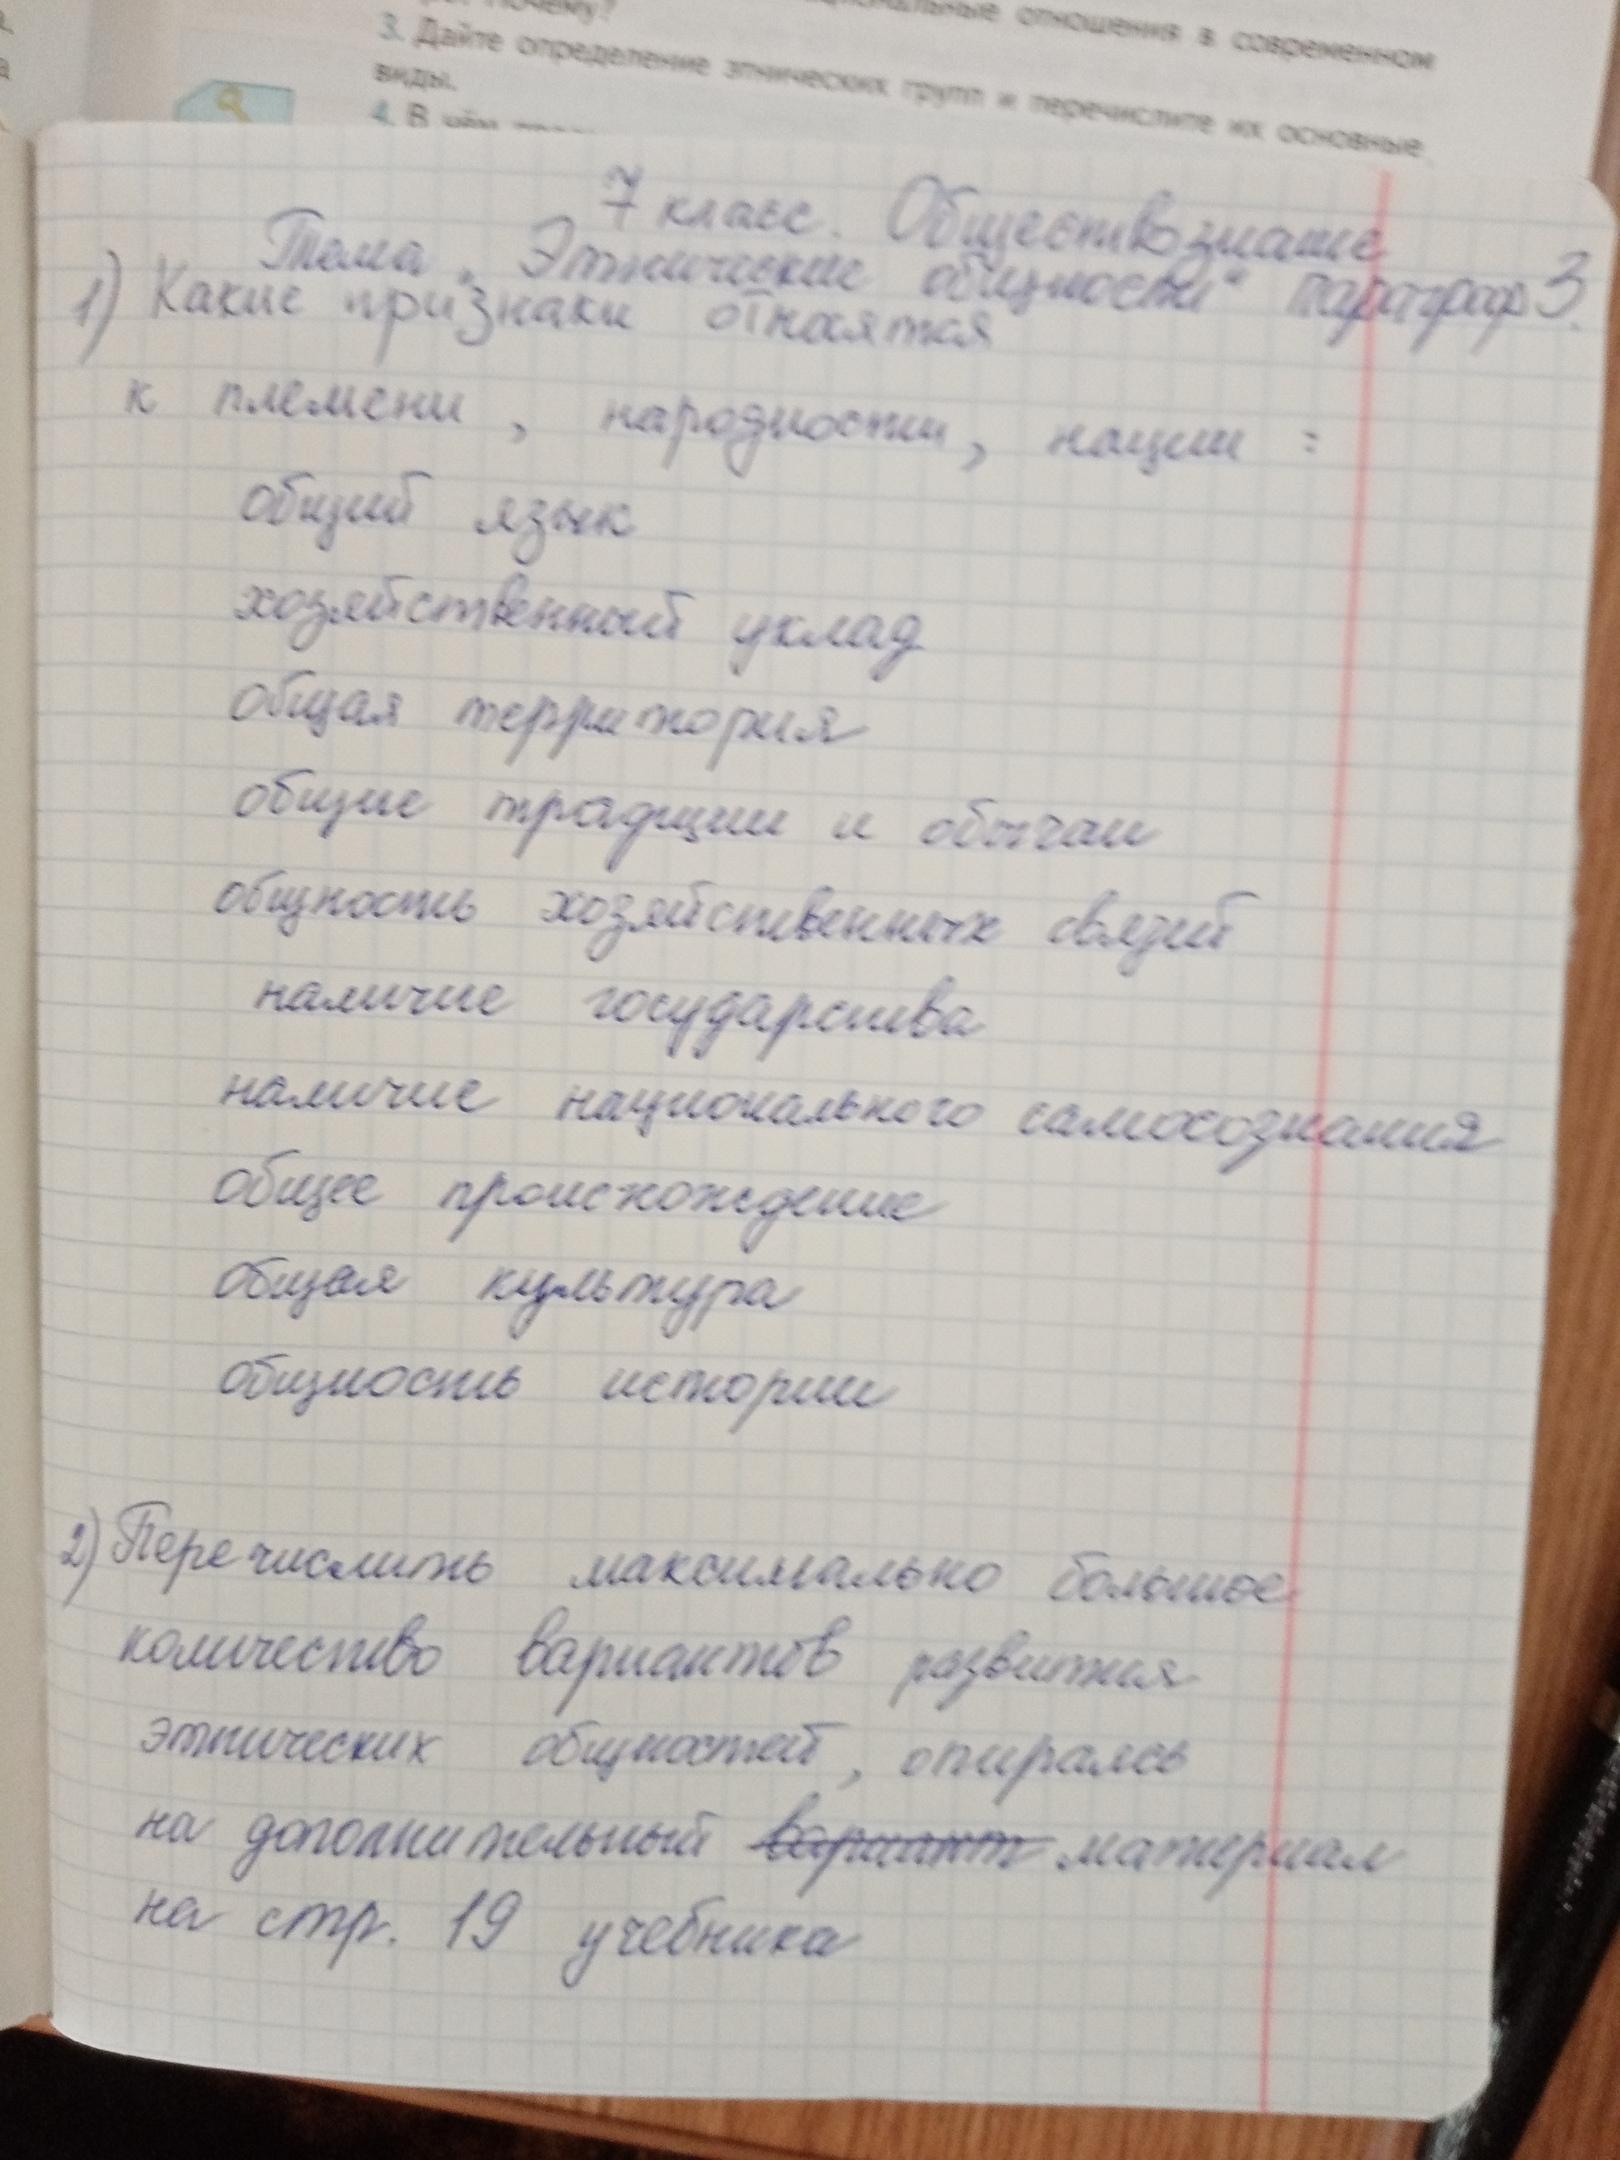 почему?
циональные отношения в современном
3. Дайте определение этнических групп и перечислите их основные
виды.
4. В чём
7 класс. Обществознание
Тема „Этнические общности“ параграф 3.
1) Какие признаки относятся
к племени, народности, нации:
общий язык
хозяйственный уклад
общая территория
общие традиции и обычаи
общность хозяйственных связей
наличие государства
наличие национального самосознания
общее происхождение
общая культура
общность истории
2) Перечислить максимально большое
количество вариантов развития
этнических общностей, опираясь
на дополнительный вариант материал
на стр. 19 учебника